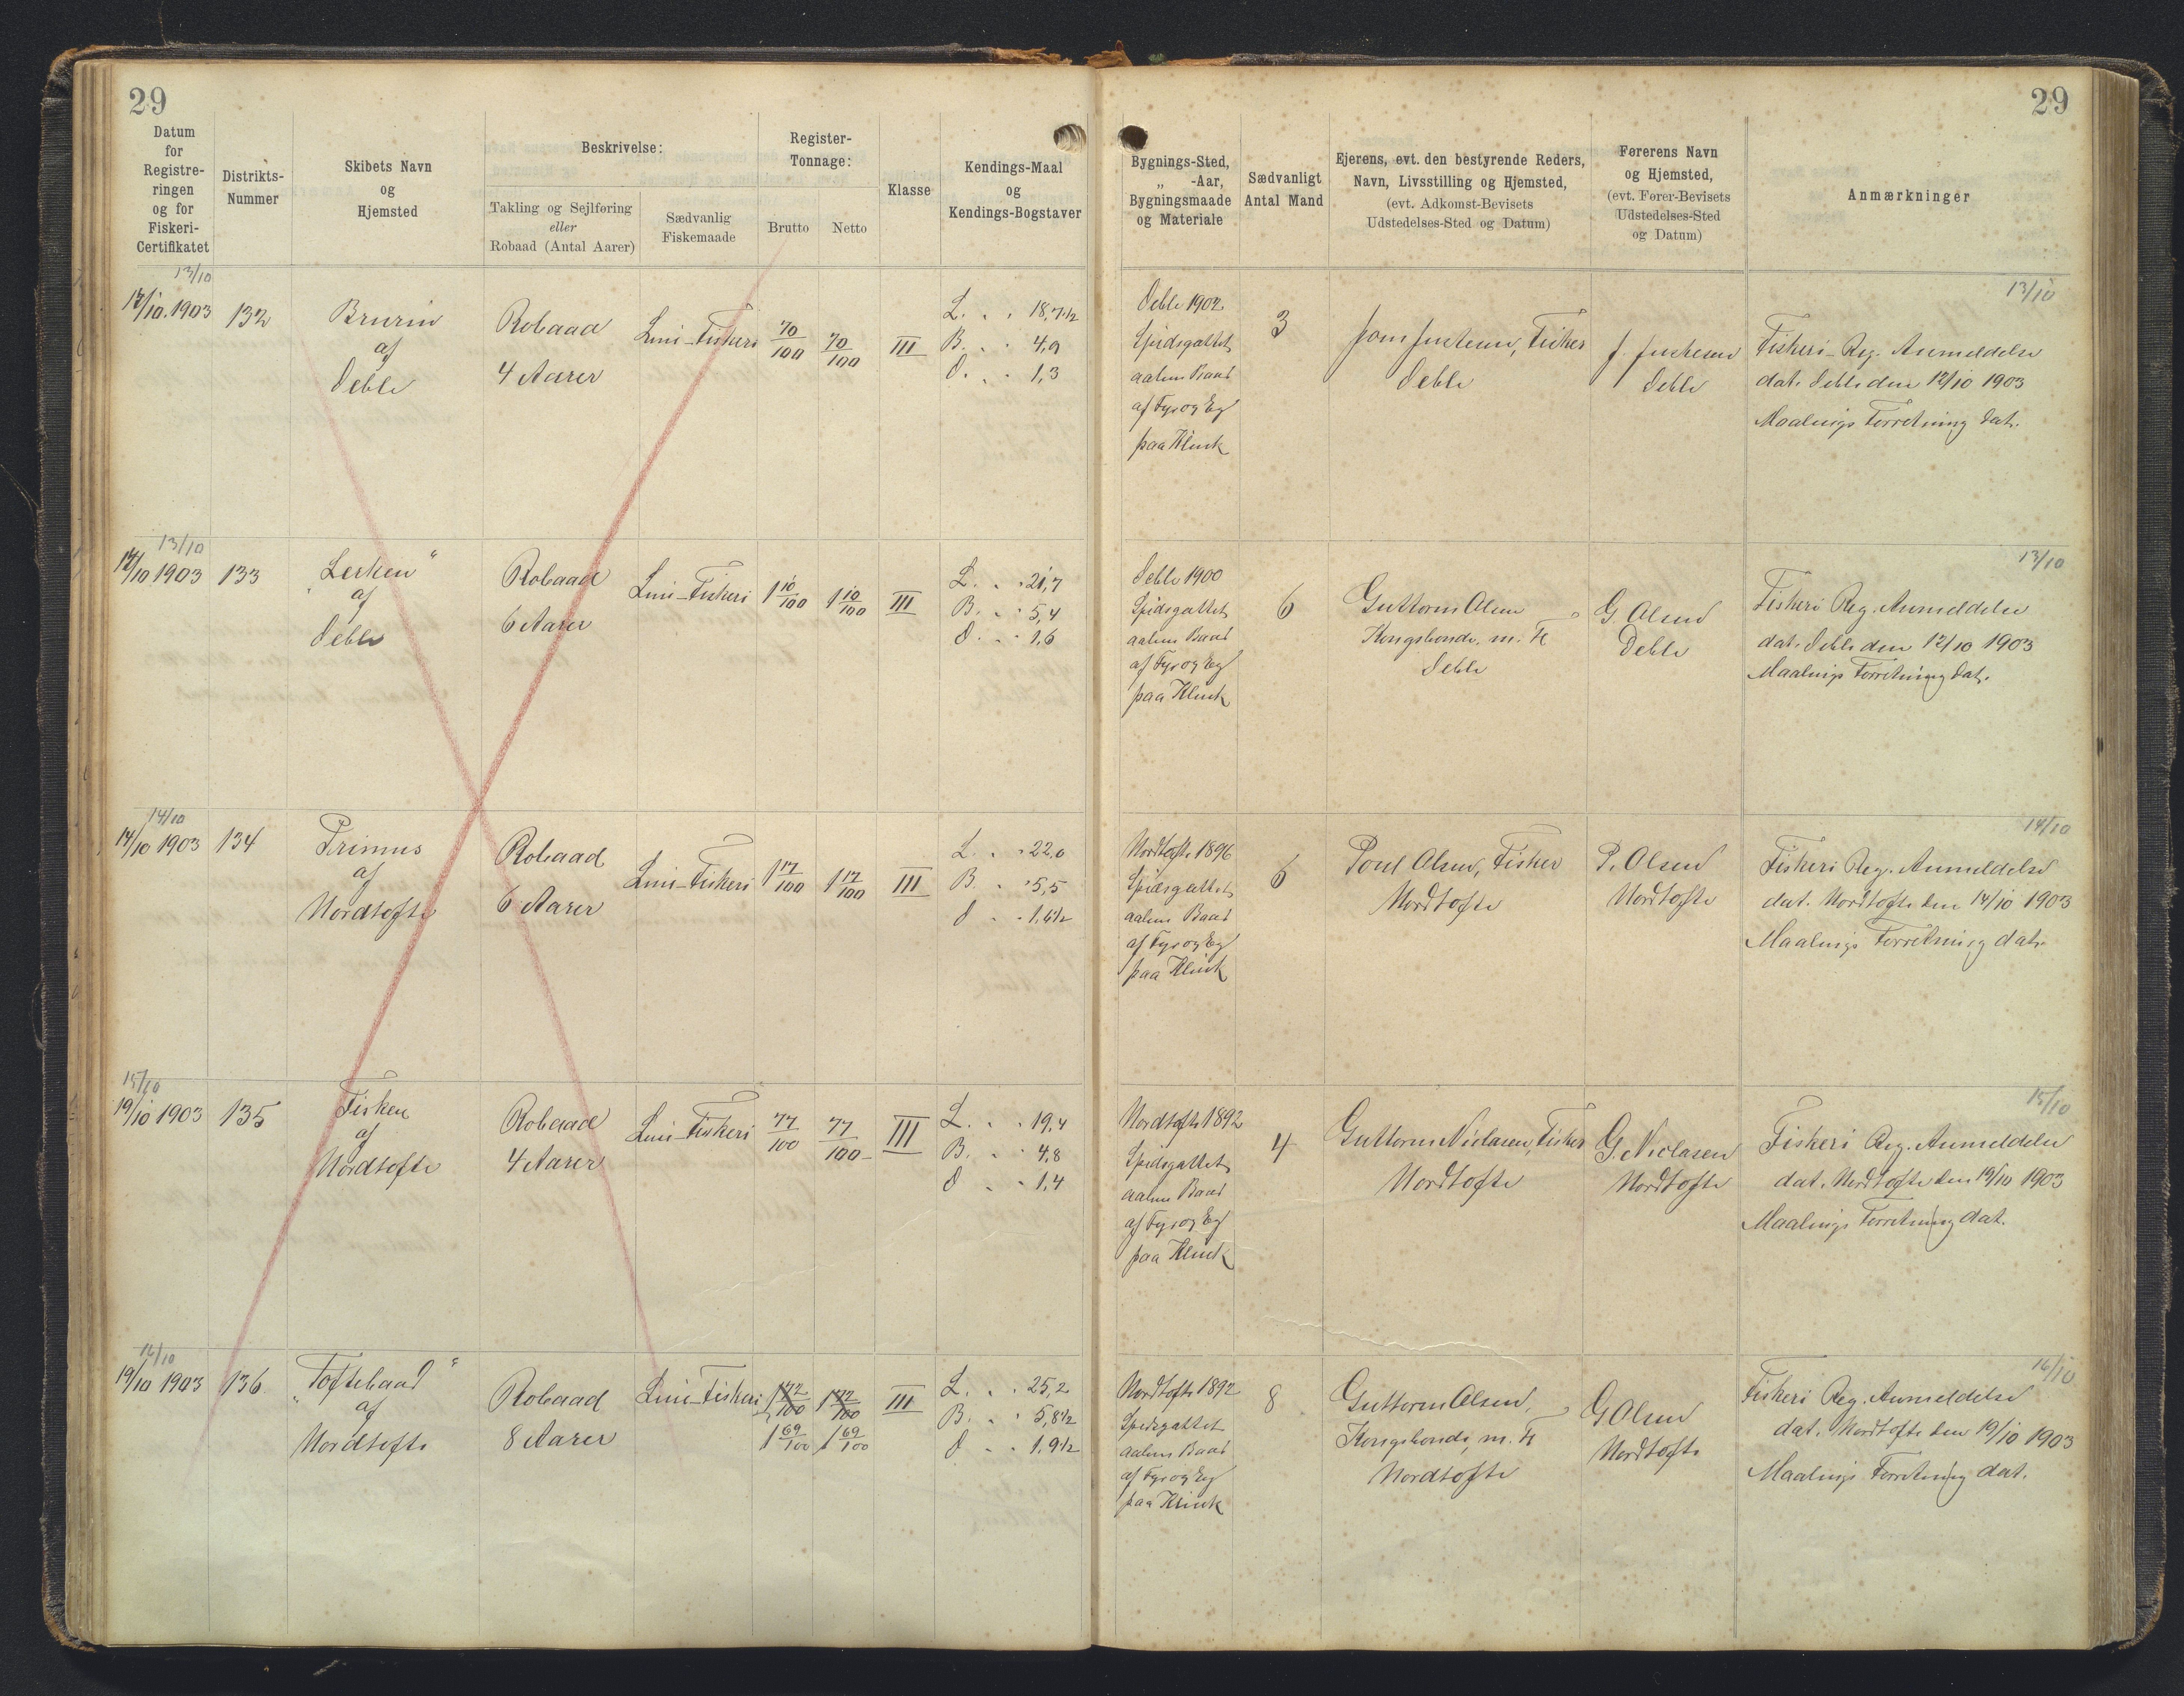 29
29
Datum
for
Registre-
ringen
og for
Fiskeri-
Certifikatet
Distrikts-
Nummer
Skibets Navn
og
Hjemsted
Beskrivelse:
Takling og Sejlføring
eller
Robaad (Antal Aarer)
Sædvanlig
Fiskemaade
Register-
Tonnage:
Brutto
Netto
Klasse
Kendings-Maal
og
Kendings-Bogstaver
Bygnings-Sted,
„ -Aar,
Bygningsmaade
og Materiale
Sædvanligt
Antal Mand
Ejerens, evt. den bestyrende Reders,
Navn, Livsstilling og Hjemsted,
(evt. Adkomst-Bevisets
Udstedelses-Sted og Datum)
Førerens Navn
og Hjemsted,
(evt. Fører-Bevisets
Udstedelses-Sted
og Datum)
Anmærkninger
13/10
12/10. 1903
132
af
Robaad
4 Aarer
Lini-Fiskeri
70/100
70/100
III
L. . . 18,7½
B. . . 4,9
D. . . 1,3
1902
Spidsgattet
aaben Baad
af Fyr og Eg
paa Klink
3
Fisker
13/10
Fiskeri-Reg. Anmeldelse
dat. den 12/10 1903
Maalings Forretning dat.
13/10
12/10 1903
133
"Lerken"
af
Robaad
6 Aarer
Lini-Fiskeri
1 10/100
1 10/100
III
L. . . 21,7
B. . . 5,4
D. . . 1,6
1900
Spidsgattet
aaben Baad
af Fyr og Eg
paa Klink
6
Guttorm Olsen
Kongsbonde, m. Fl
G. Olsen
13/10
Fiskeri Reg. Anmeldelse
dat. den 12/10 1903
Maalings Forretning dat.
14/10
14/10 1903
134
Primus
af
Nordtofte
Robaad
6 Aarer
Lini-Fiskeri
1 17/100
1 17/100
III
L. . . 22,0
B. . . 5,5
D . . 1,6½
Nordtofte 1896
Spidsgattet
aaben Baad
af Fyr og Eg
paa Klink
6
Poul Olsen, Fisker
Nordtofte
P. Olsen
Nordtofte
14/10
Fiskeri Reg. Anmeldelse
dat. Nordtofte den 14/10 1903
Maalings Forretning dat.
15/10
19/10 1903
135
Fisken
af
Nordtofte
Robaad
4 Aarer
Lini-Fiskeri
77/100
77/100
III
L. . . 19,4
B. . . 4,8
D . . 1,4
Nordtofte 1892
Spidsgattet
aaben Baad
af Fyr og Eg
paa Klink
4
Guttorm Niclasen, Fisker
Nordtofte
G. Niclasen
Nordtofte
15/10
Fiskeri Reg. Anmeldelse
dat. Nordtofte den 19/10 1903
Maalings Forretning dat.
16/10
19/10 1903
136
"Toftebaad"
af
Nordtofte
Robaad
8 Aarer
Lini-Fiskeri
1 72/100
1 69/100
1 72/100
1 69/100
III
L. . . 25,2
B. . . 5,8½
D . . 1,9½
Nordtofte 1892
Spidsgattet
aaben Baad
af Fyr og Eg
paa Klink
8
Guttorm Olsen,
Kongsbonde, m. Fl
Nordtofte
G Olsen
Nordtofte
16/10
Fiskeri Reg. Anmeldelse
dat. Nordtofte den 19/10 1903
Maalings Forretning dat.